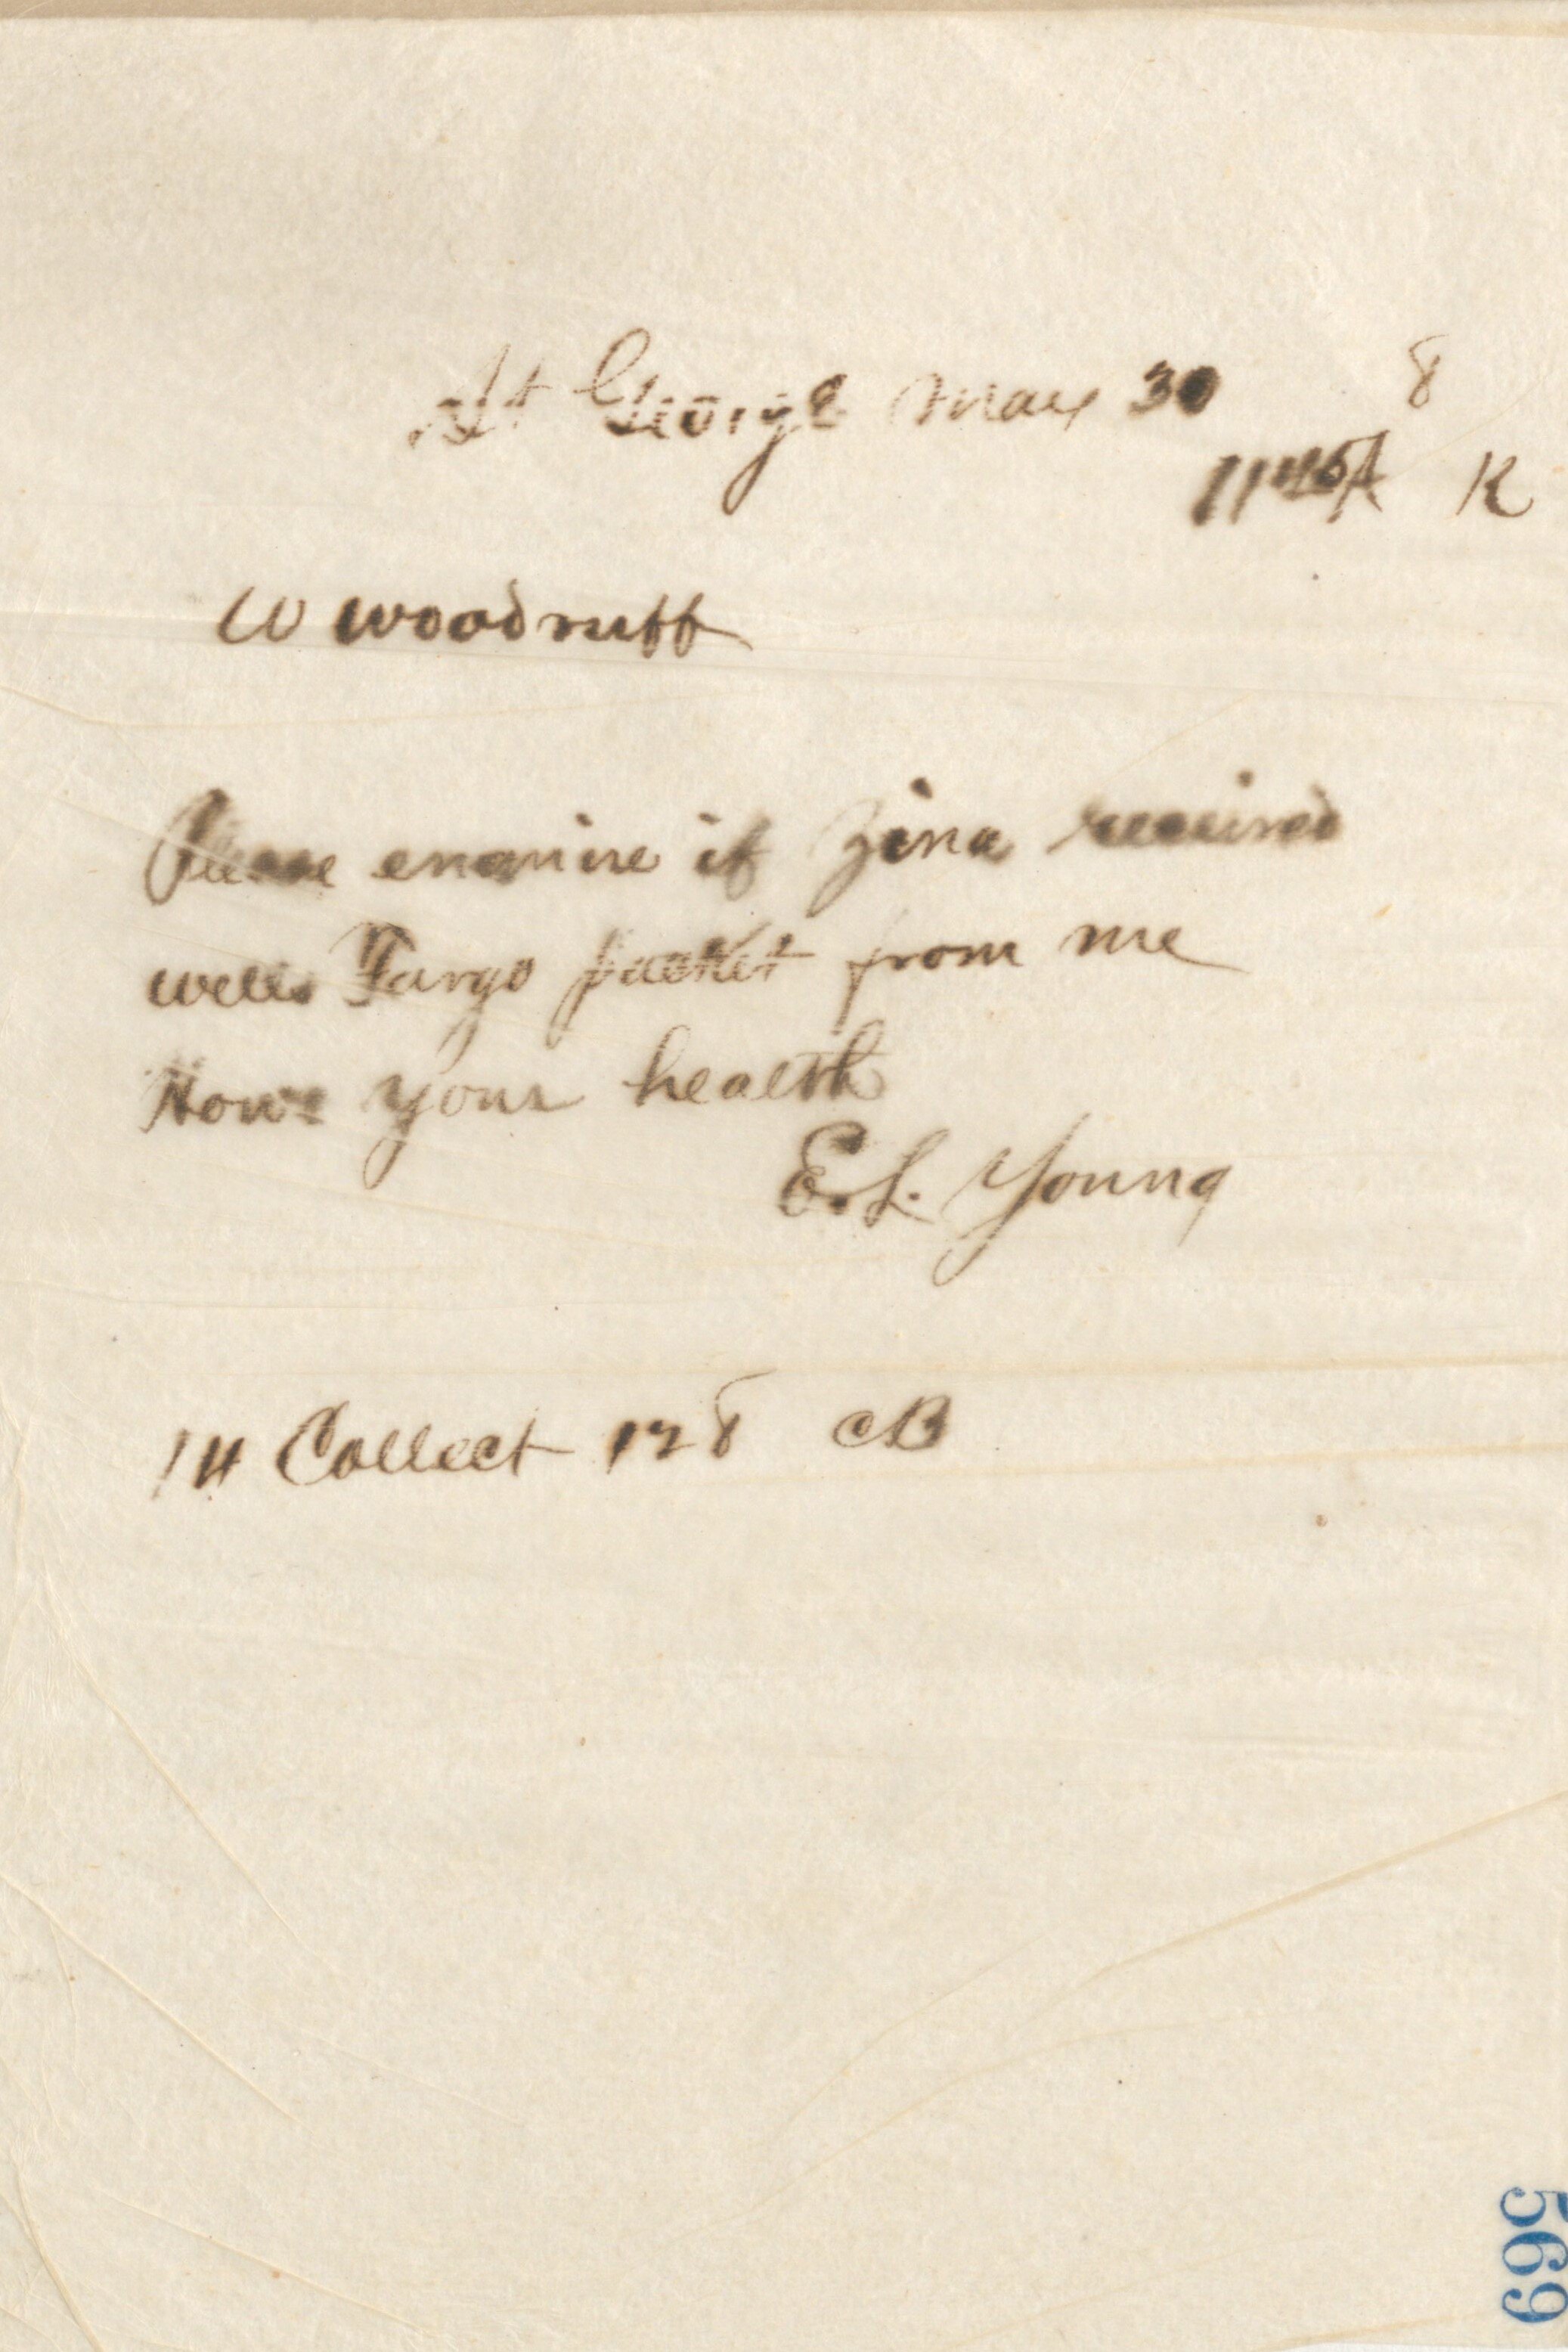 St George May 30 8
11 45 A K
W Woodruff
Please enquire if Zina received
wells Fargo packet from me
Hows your health
E. L. Young
14 Collect 128 CB
569